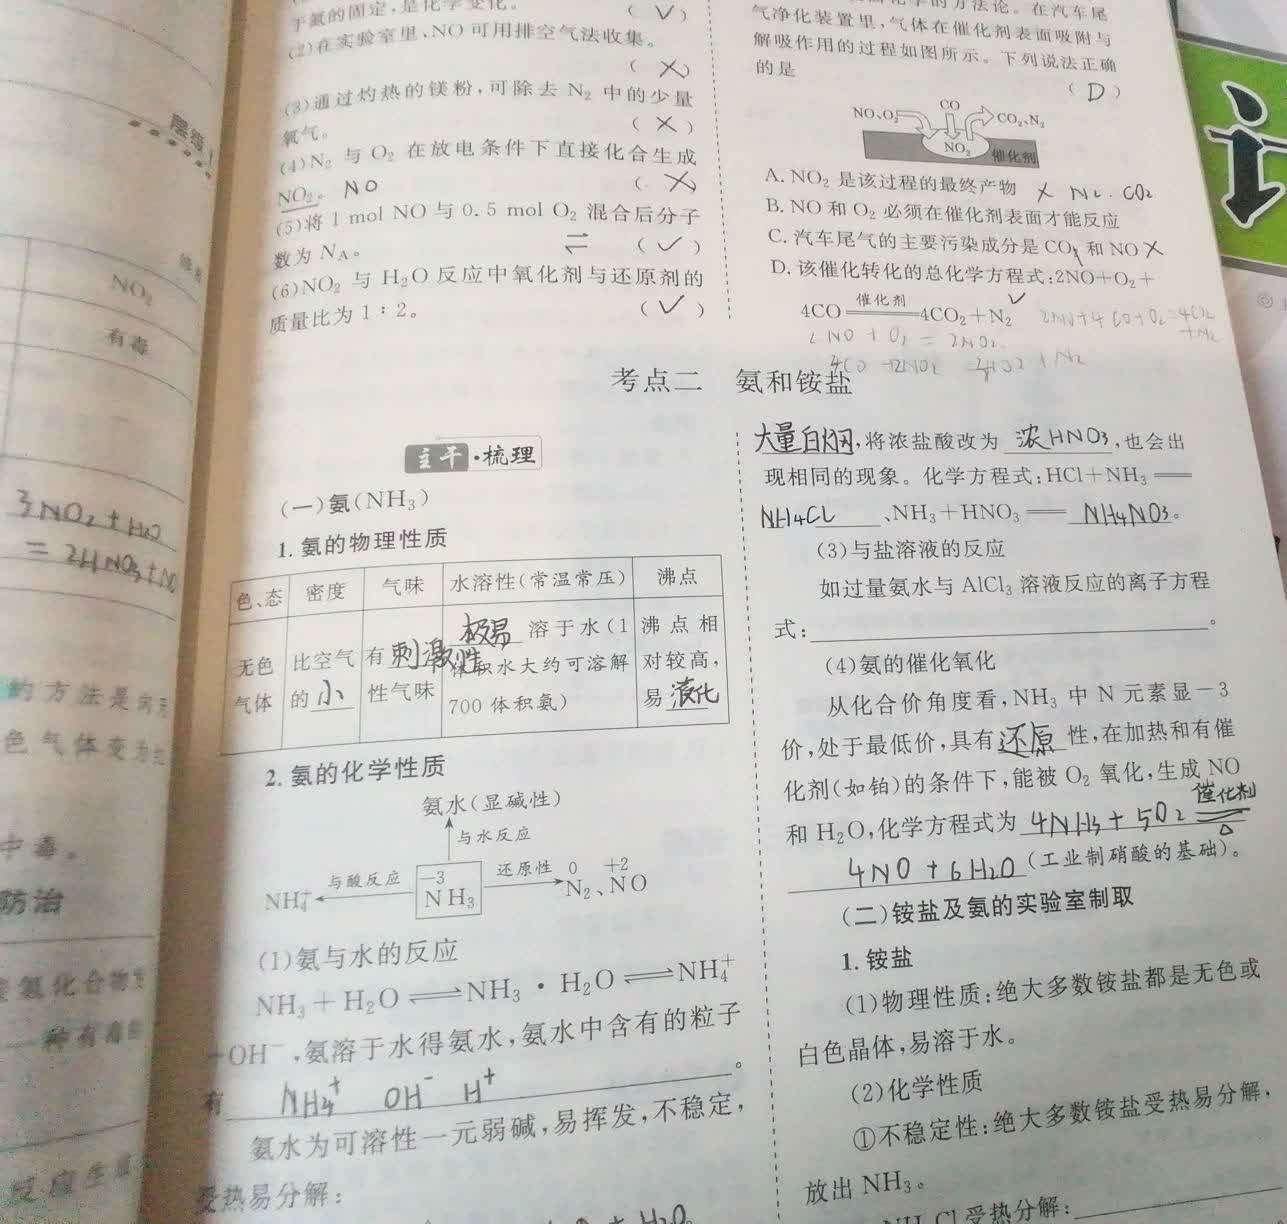 于氨的固定,是化学变化。 ( ✓ )
(2)在实验室里、NO可用排空气法收集。
( × )
(3)通过灼热的镁粉,可除去 N₂ 中的少量
氧气。 ( × )
(4)N₂ 与 O₂ 在放电条件下直接化合生成
NO₂。 NO ( × )
(5)将 1 mol NO 与 0.5 mol O₂ 混合后分子
数为 Nᴀ。 ⇌ ( ✓ )
(6)NO₂ 与 H₂O 反应中氧化剂与还原剂的
质量比为 1∶2。 ( ✓ )
的方法论。在汽车尾
气净化装置里,气体在催化剂表面吸附与
解吸作用的过程如图所示。下列说法正确
的是 ( D )
NO、O₂ CO CO₂、N₂
NO₂ 催化剂
A. NO₂ 是该过程的最终产物 × N₂ . CO₂
B. NO 和 O₂ 必须在催化剂表面才能反应
C. 汽车尾气的主要污染成分是 CO₂ 和 NO ×
D. 该催化转化的总化学方程式:2NO+O₂+
4CO 催化剂 ══ 4CO₂+N₂ ✓
2NO + O₂ = 2NO₂
考点二 氨和铵盐
主干·梳理
(一)氨(NH₃)
1. 氨的物理性质
色、态 密度 气味 水溶性(常温常压) 沸点
无色 比空气 有刺激性 极易 溶于水(1 沸点相
气体 的 小 性气味 体积水大约可溶解 对较高,
700 体积氨) 易 液化
2. 氨的化学性质
氨水(显碱性)
与水反应
NH₄⁺ 与酸反应 -3 NH₃ 还原性 0 +2 N₂、NO
(1)氨与水的反应
NH₃+H₂O⇌NH₃·H₂O⇌NH₄⁺
+OH⁻,氨溶于水得氨水,氨水中含有的粒子
有 NH₄⁺ OH⁻ H⁺ 。
氨水为可溶性一元弱碱,易挥发,不稳定,
受热易分解:
大量白烟,将浓盐酸改为 浓HNO₃,也会出
现相同的现象。化学方程式:HCl+NH₃══
NH₄Cl 、NH₃+HNO₃══ NH₄NO₃。
(3)与盐溶液的反应
如过量氨水与 AlCl₃ 溶液反应的离子方程
式: 。
(4)氨的催化氧化
从化合价角度看,NH₃ 中 N 元素显-3
价,处于最低价,具有 还原 性,在加热和有催
化剂(如铂)的条件下,能被 O₂ 氧化,生成 NO
和 H₂O,化学方程式为 4NH₃ + 5O₂ 催化剂 ══ △
4NO + 6H₂O (工业制硝酸的基础)。
(二)铵盐及氨的实验室制取
1. 铵盐
(1)物理性质:绝大多数铵盐都是无色或
白色晶体,易溶于水。
(2)化学性质
①不稳定性:绝大多数铵盐受热易分解,
放出 NH₃。
NH₄Cl 受热分解:
NO₂
有毒
3NO₂ + H₂O
= 2HNO₃ + NO
的方法是
色气体变为红
中毒。
防治
氮化合物
一种有毒
反应生